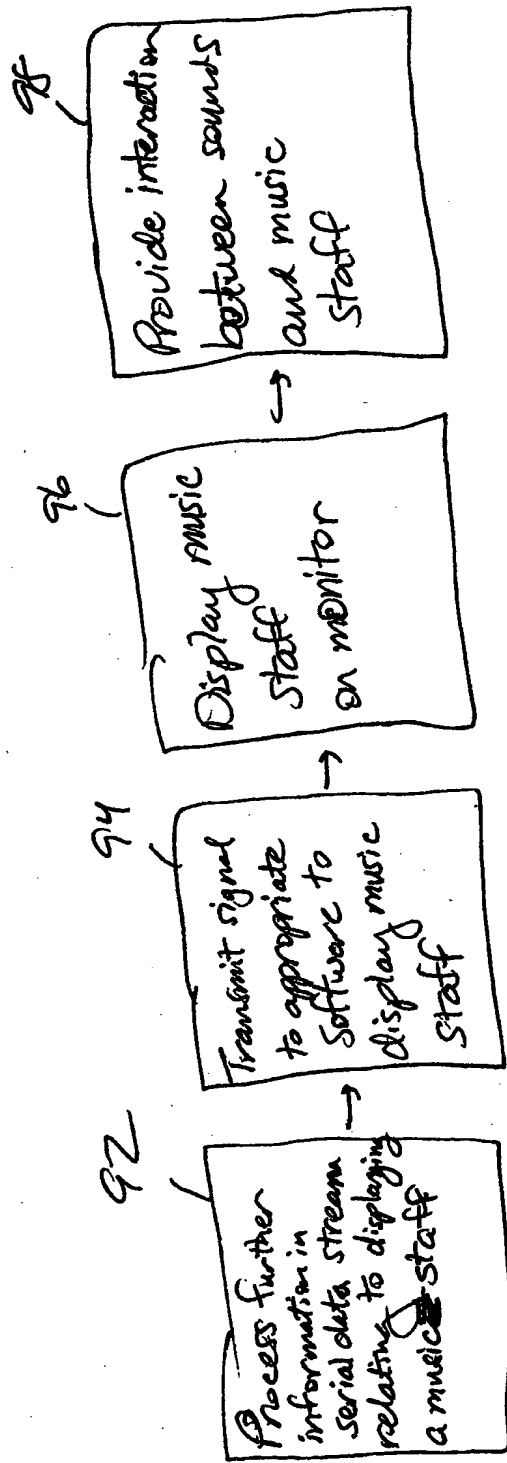 92
Process further
information in
serial data stream
relating to displaying
a music staff
94
Transmit signal
to appropriate
software to
display music
staff
96
Display music
staff
on monitor
98
Provide interaction
between sounds
and music
staff